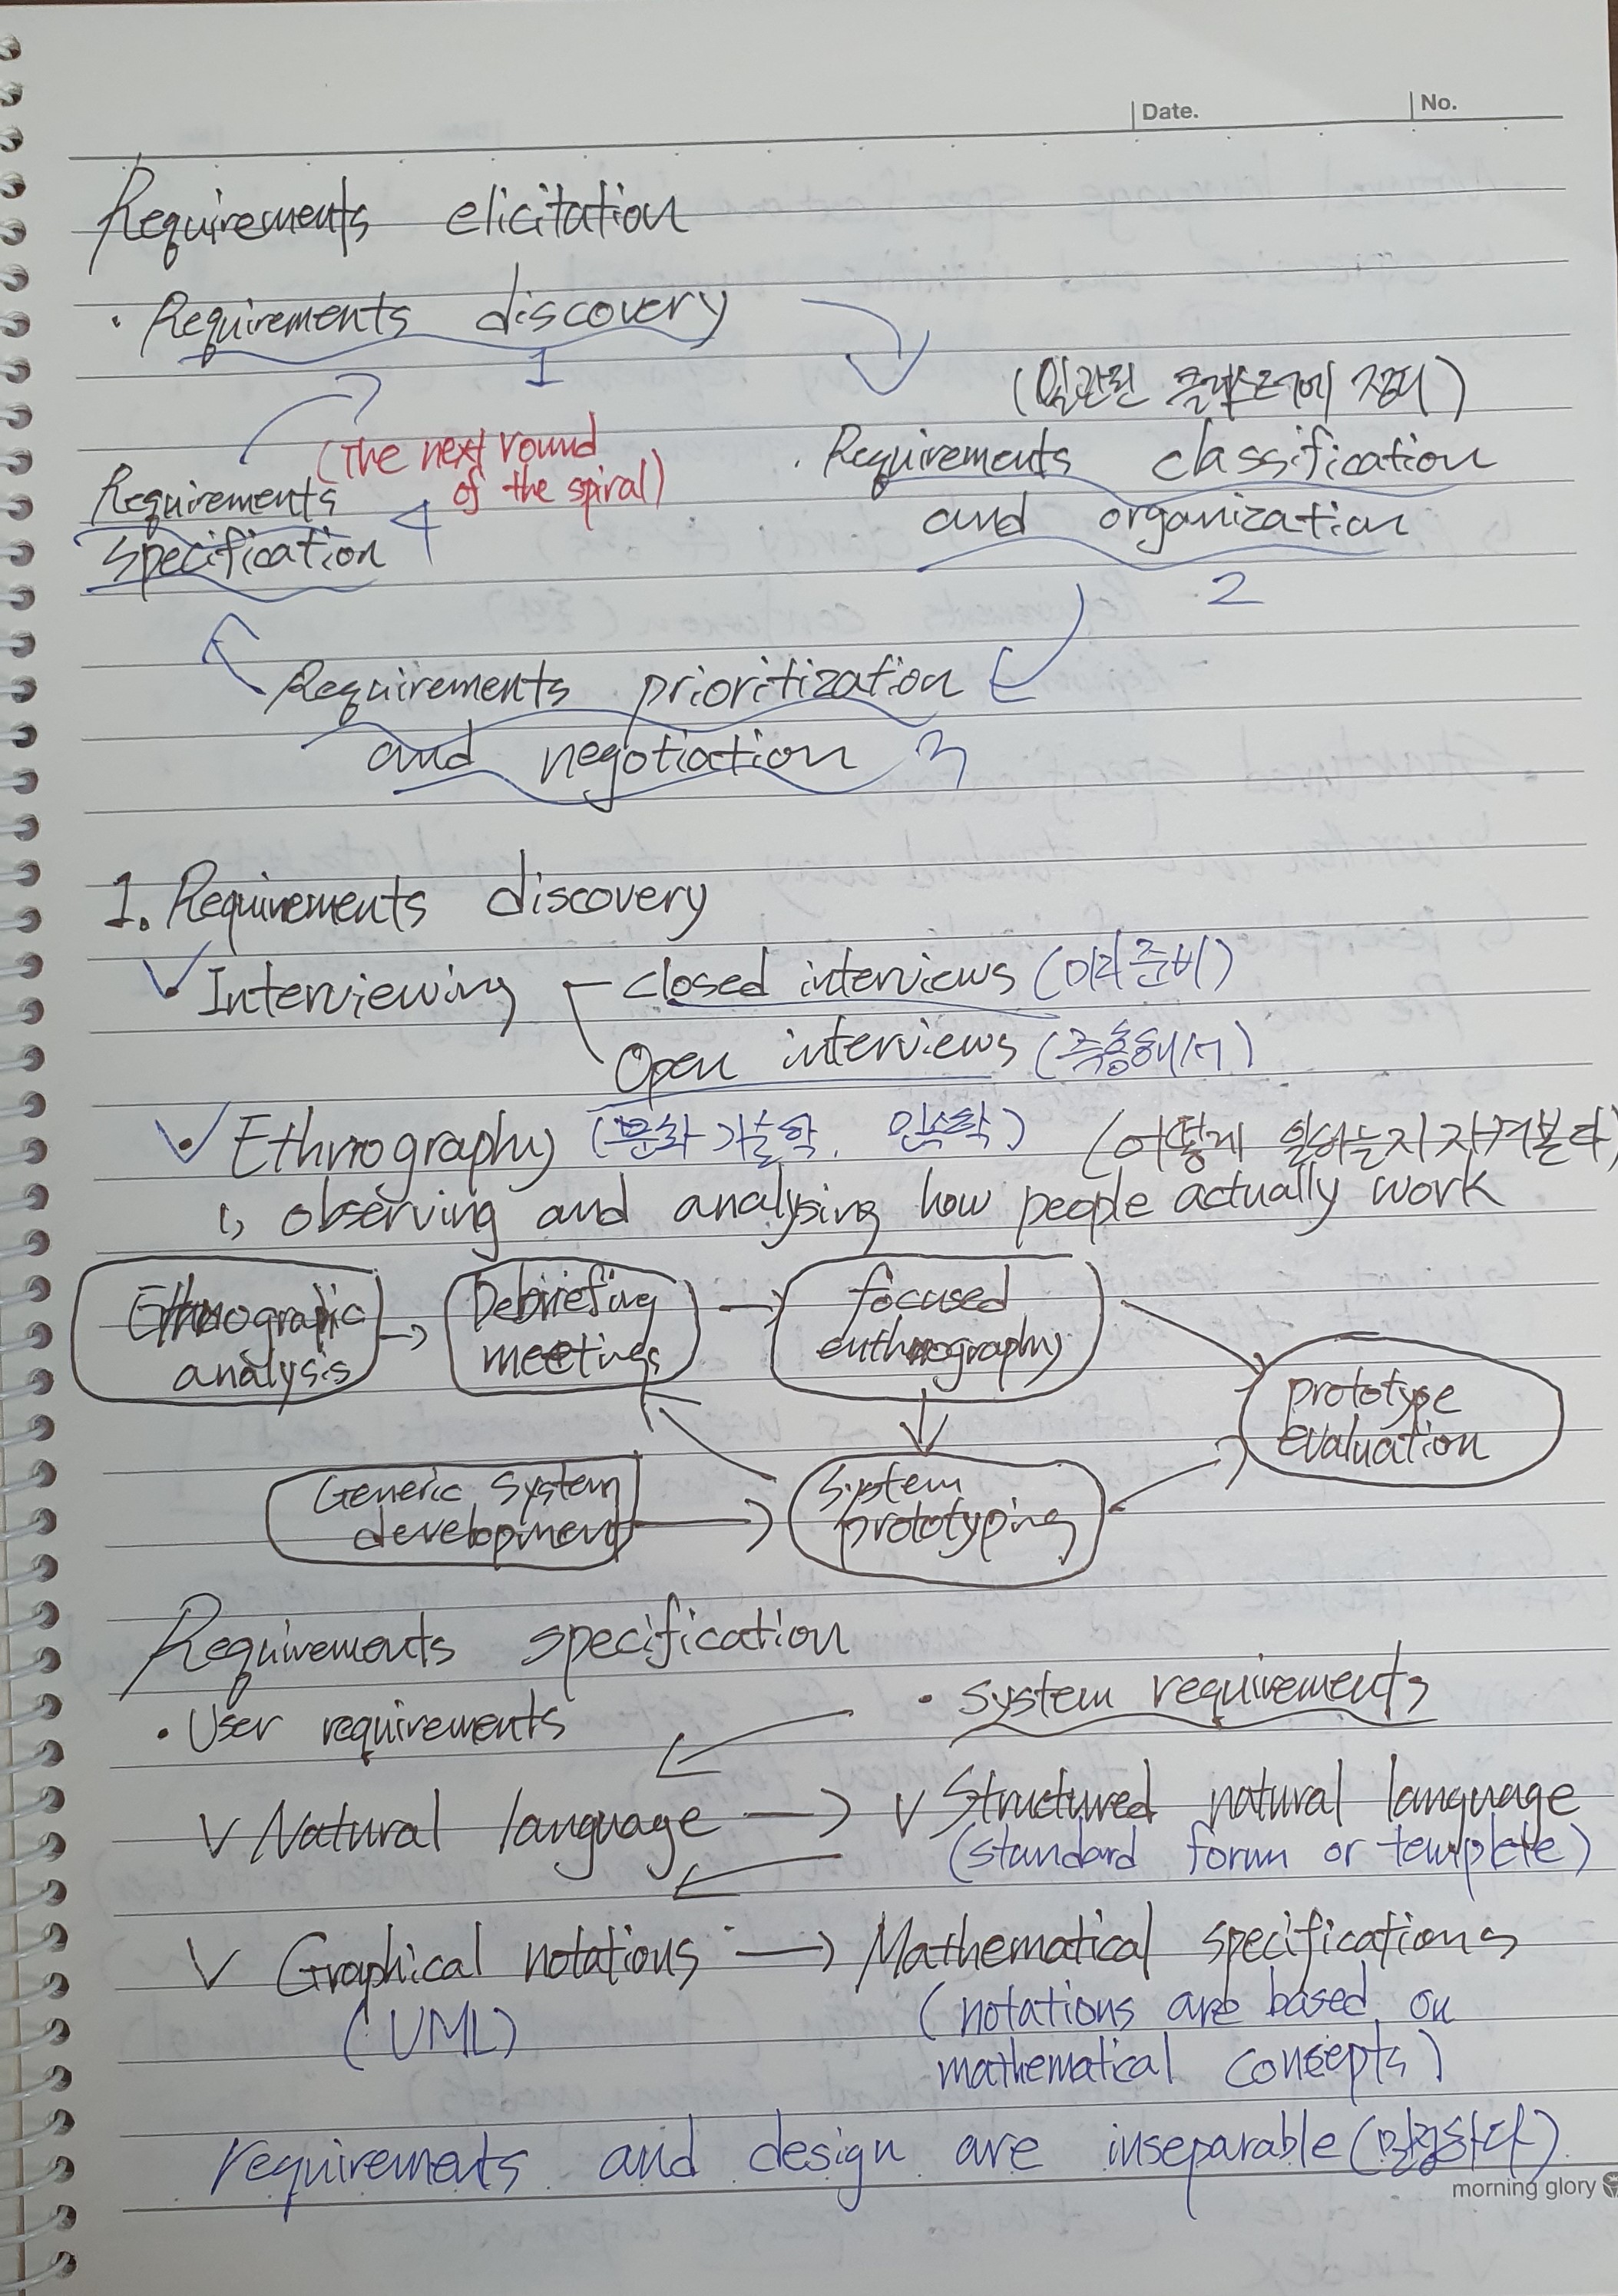 Date. No.
Requirements elicitation
· Requirements discovery
1
(일관된 클러스터에 정리)
(The next round
of the spiral)
· Requirements classification
and organization
2
Requirements
specification
4
Requirements prioritization
and negotiation 3
1. Requirements discovery
V • Interviewing closed interviews (미리 준비)
Open interviews (즉흥해서)
V • Ethnography (문화 기술학, 민속학) (어떻게 일하는지 지켜본다)
↳ observing and analysing how people actually work
Ethnographic
analysis
→
Debriefing
meetings
→
focused
enthnography
prototype
evaluation
Generic system
development
→
System
prototyping
Requirements specification
· User requirements
· System requirements
V Natural language → V Structured natural language
(standard form or template)
V Graphical notations → Mathematical specifications
(UML)
(notations are based on
mathematical concepts)
requirements and design are inseparable
morning glory